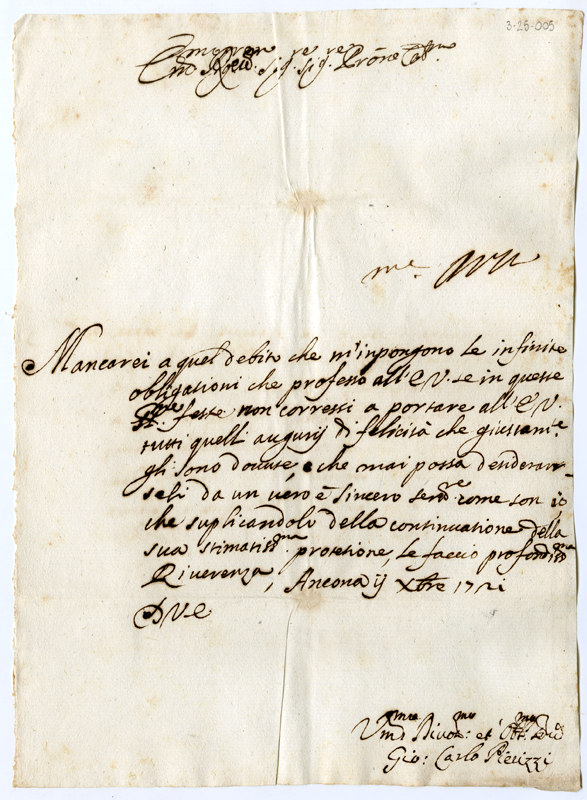 3-25-005
Sig.re Sig.re Prõne Col.mo
Mancarei a quel debito che m'inpongono le infinite
obligationi che professo all'E V. se in queste
S.me feste non corressi a portare all'E V.
tutti quelli augurij di felicità che giustam.e
gli sono dovute, e che mai possa desiderar
seli da un vero è sincero serv.re come son io
che suplicandolo della continuatione della
sua stimatiss.ma protetione, le faccio profondiss.ma
Riverenza, Ancona ij Xbre 1721
D V. E
Um.mo Divot.mo et Obl.mo
Gio: Carlo Pieruzzi